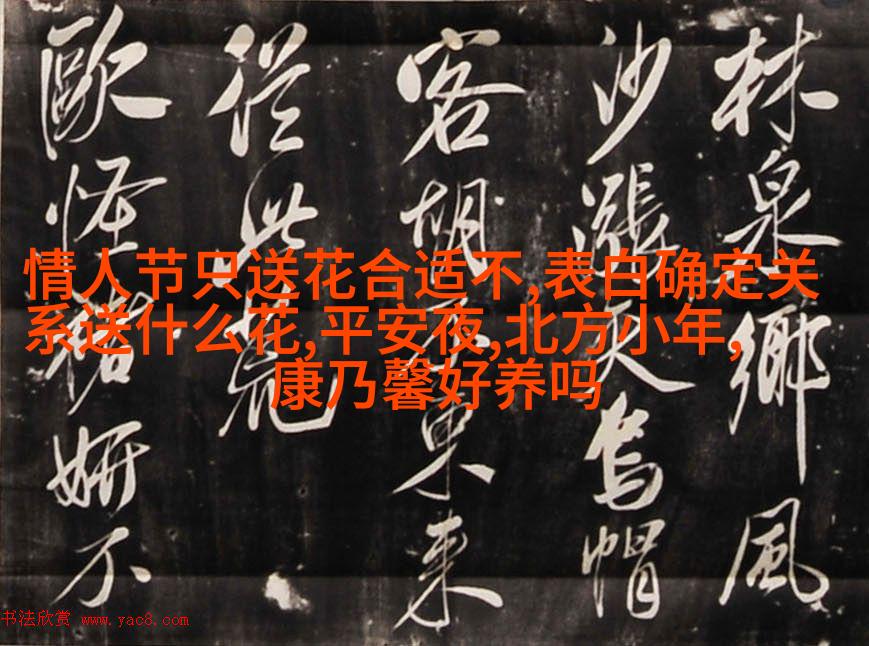 情人节只送花合适不,表白确定关
系送什么花,平安夜,北方小年,
康乃馨好养吗
林泉鄉風
沙漲天烏帽
客胡東來
從此
歐怪褚妍不
书法欣赏 www.yac8.com